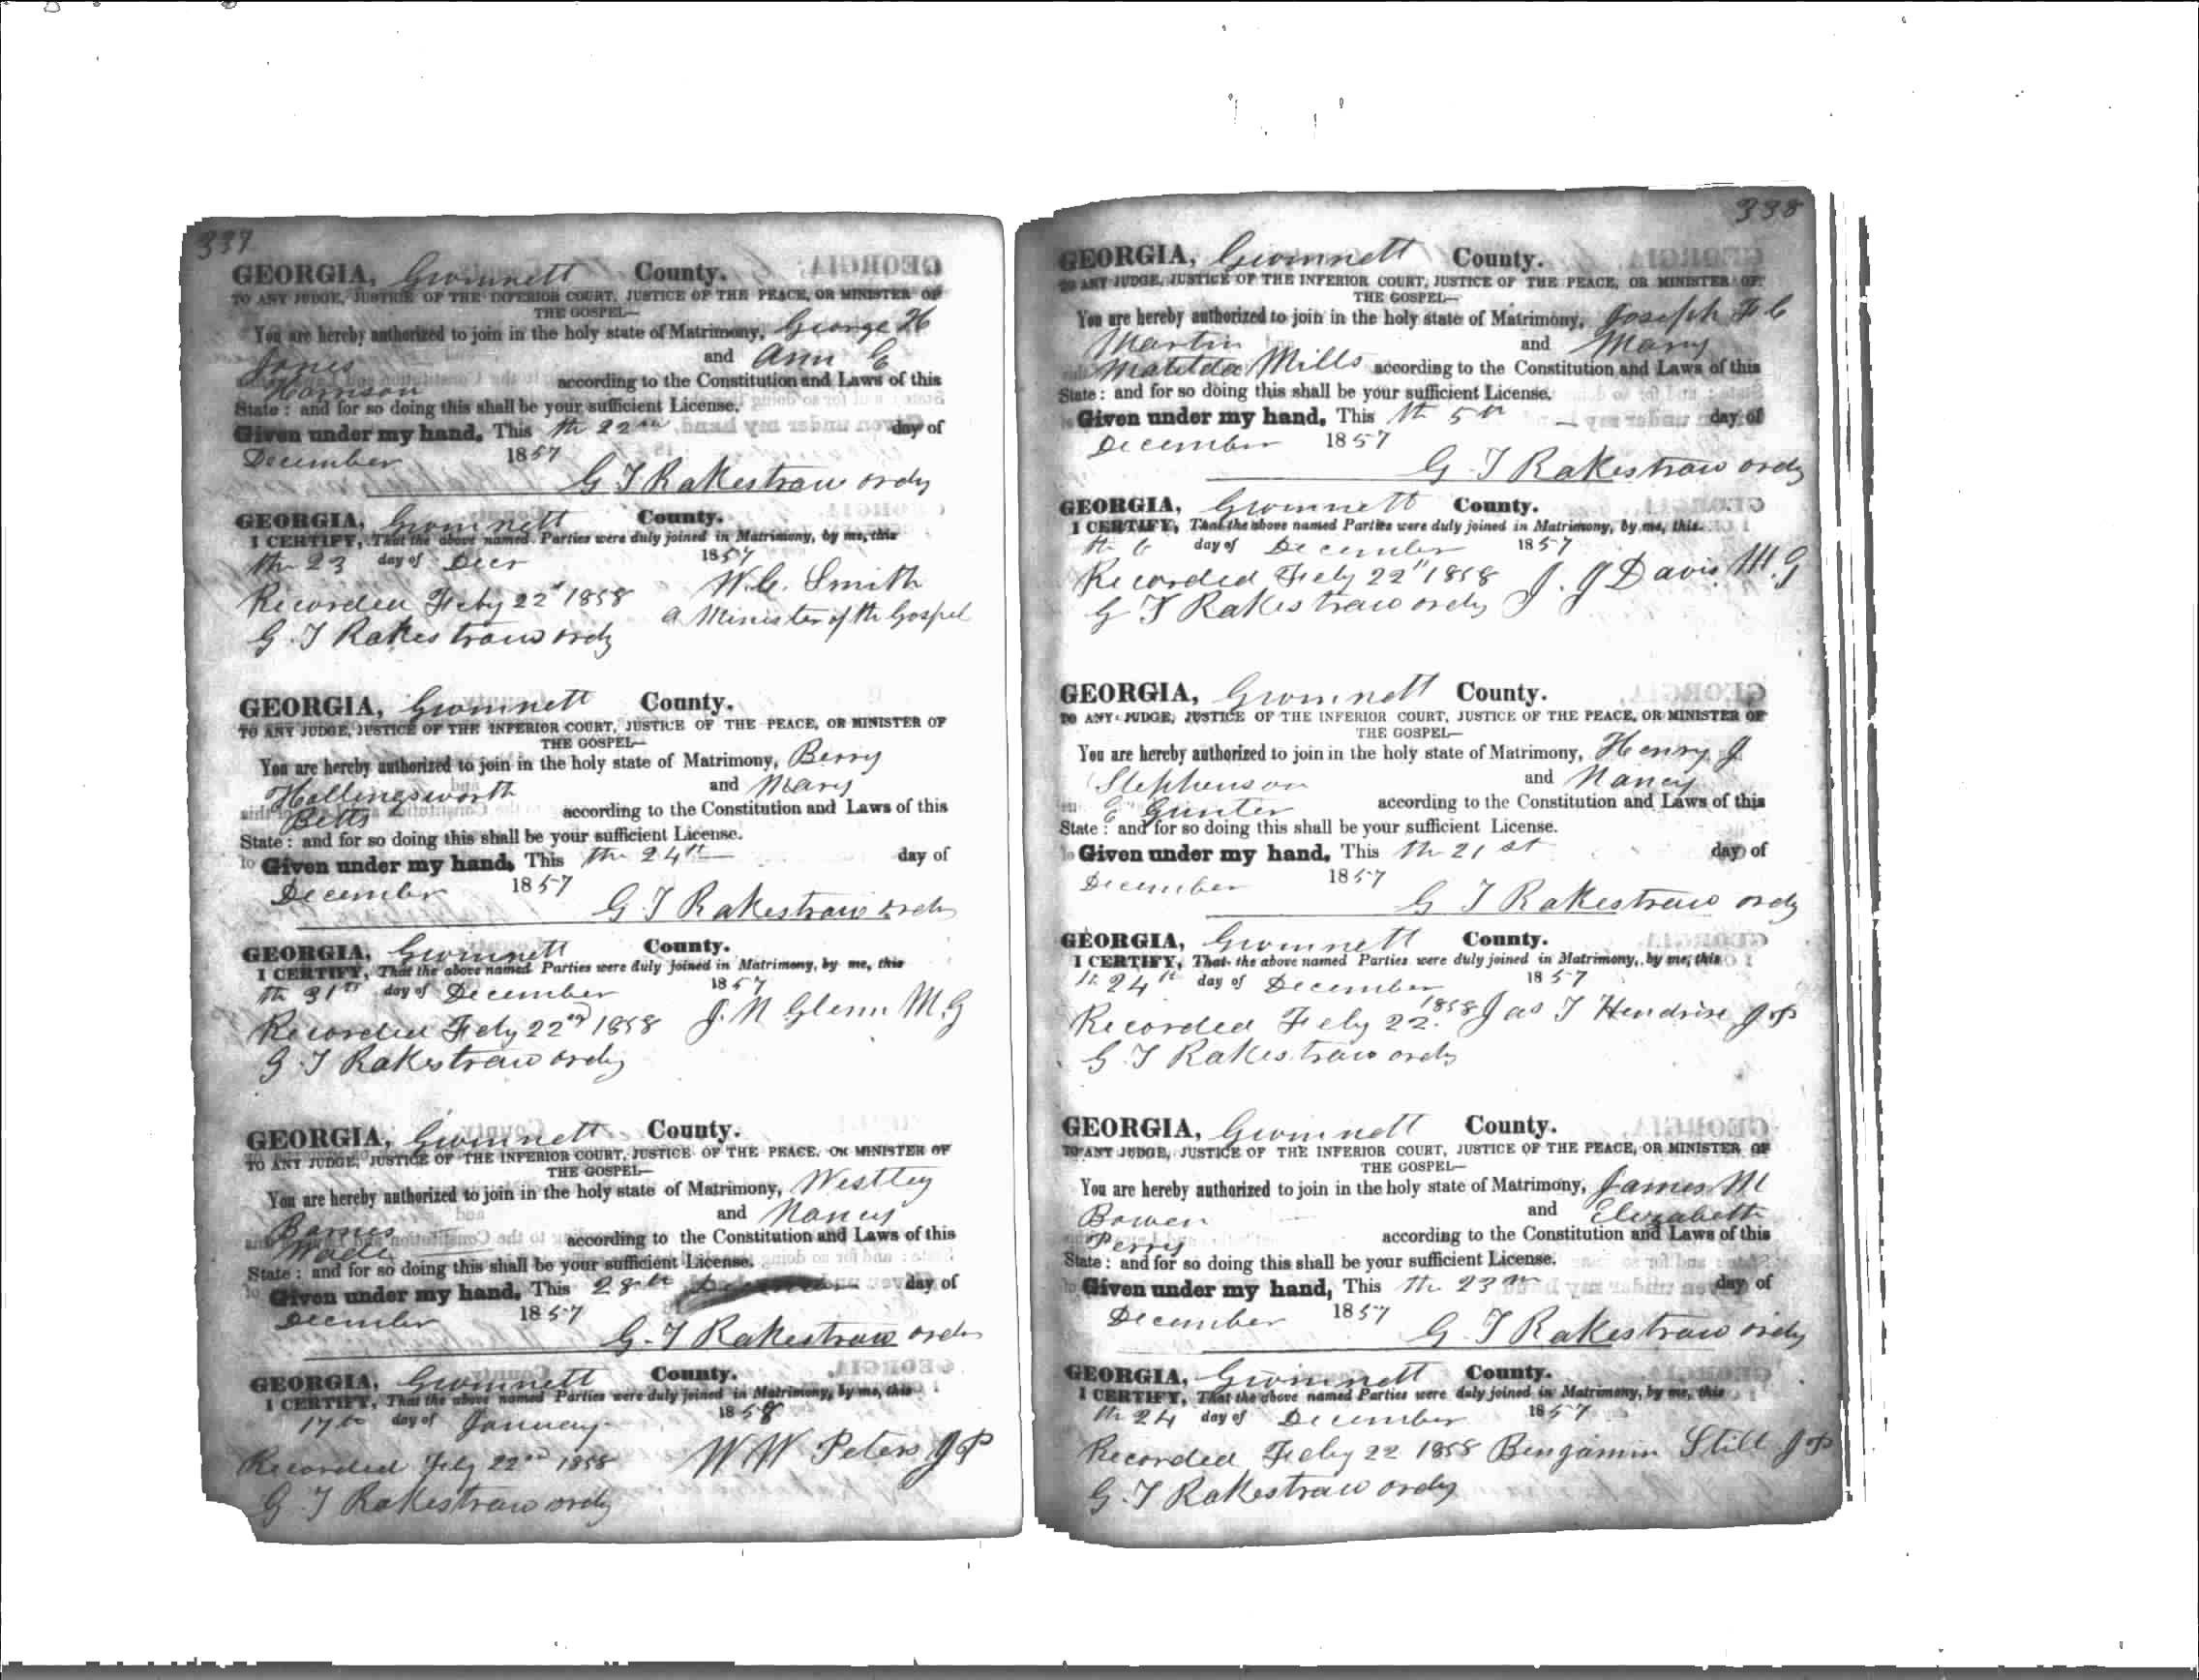 337
GEORGIA, Gwinnett County.
TO ANY JUDGE, JUSTICE OF THE INFERIOR COURT, JUSTICE OF THE PEACE, OR MINISTER OF
THE GOSPEL—
You are hereby authorized to join in the holy state of Matrimony, George H
Jones and Ann E
Harrison according to the Constitution and Laws of this
State: and for so doing this shall be your sufficient License.
Given under my hand, This th 22nd day of
December 1857
G T Rakestraw ordy
GEORGIA, Gwinnett County.
I CERTIFY, That the above named Parties were duly joined in Matrimony, by me, this
th 23 day of Decr 1857
W.C. Smith
Recorded Feby 22d 1858 a Minister of th Gospel
G. T Rakestraw ordy
GEORGIA, Gwinnett County.
TO ANY JUDGE, JUSTICE OF THE INFERIOR COURT, JUSTICE OF THE PEACE, OR MINISTER OF
THE GOSPEL—
You are hereby authorized to join in the holy state of Matrimony, Berry
Hollingsworth and Mary
Betts according to the Constitution and Laws of this
State: and for so doing this shall be your sufficient License.
Given under my hand, This th 24th day of
December 1857
G. T Rakestraw ordy
GEORGIA, Gwinnett County.
I CERTIFY, That the above named Parties were duly joined in Matrimony, by me, this
th 31st day of December 1857
Recorded Feby 22nd 1858 J. N Glenn M.G
G. T Rakestraw ordy
GEORGIA, Gwinnett County.
TO ANY JUDGE, JUSTICE OF THE INFERIOR COURT, JUSTICE OF THE PEACE, OR MINISTER OF
THE GOSPEL—
You are hereby authorized to join in the holy state of Matrimony, Westley
Barnes and Nancy
Wade according to the Constitution and Laws of this
State: and for so doing this shall be your sufficient License.
Given under my hand, This 28th day of
December 1857
G. T Rakestraw ordy
GEORGIA, Gwinnett County.
I CERTIFY, That the above named Parties were duly joined in Matrimony, by me, this
17th day of January 1858
Recorded Feby 22nd 1858 W W Peters J P
G. T Rakestraw ordy
338
GEORGIA, Gwinnett County.
TO ANY JUDGE, JUSTICE OF THE INFERIOR COURT, JUSTICE OF THE PEACE, OR MINISTER OF
THE GOSPEL—
You are hereby authorized to join in the holy state of Matrimony, Joseph F C
Martin and Mary
Matilda Mills according to the Constitution and Laws of this
State: and for so doing this shall be your sufficient License.
Given under my hand, This th 5th day of
December 1857
G. T Rakestraw ordy
GEORGIA, Gwinnett County.
I CERTIFY, That the above named Parties were duly joined in Matrimony, by me, this
th 6 day of December 1857
Recorded Feby 22" 1858 J. J Davis M.G
G T Rakestraw ordy
GEORGIA, Gwinnett County.
TO ANY JUDGE, JUSTICE OF THE INFERIOR COURT, JUSTICE OF THE PEACE, OR MINISTER OF
THE GOSPEL—
You are hereby authorized to join in the holy state of Matrimony, Henry J
Stephenson and Nancy
E Gunter according to the Constitution and Laws of this
State: and for so doing this shall be your sufficient License.
Given under my hand, This th 21st day of
December 1857
G T Rakestraw ordy
GEORGIA, Gwinnett County.
I CERTIFY, That the above named Parties were duly joined in Matrimony, by me, this
th 24th day of December 1857
Recorded Feby 22. 1858 Jas T Hendrix J P
G. T Rakestraw ordy
GEORGIA, Gwinnett County.
TO ANY JUDGE, JUSTICE OF THE INFERIOR COURT, JUSTICE OF THE PEACE, OR MINISTER OF
THE GOSPEL—
You are hereby authorized to join in the holy state of Matrimony, James M
Bowen and Elizabeth
Perry according to the Constitution and Laws of this
State: and for so doing this shall be your sufficient License.
Given under my hand, This th 23rd day of
December 1857
G. T Rakestraw ordy
GEORGIA, Gwinnett County.
I CERTIFY, That the above named Parties were duly joined in Matrimony, by me, this
th 24 day of December 1857
Recorded Feby 22 1858 Benjamin Still J P
G. T Rakestraw ordy